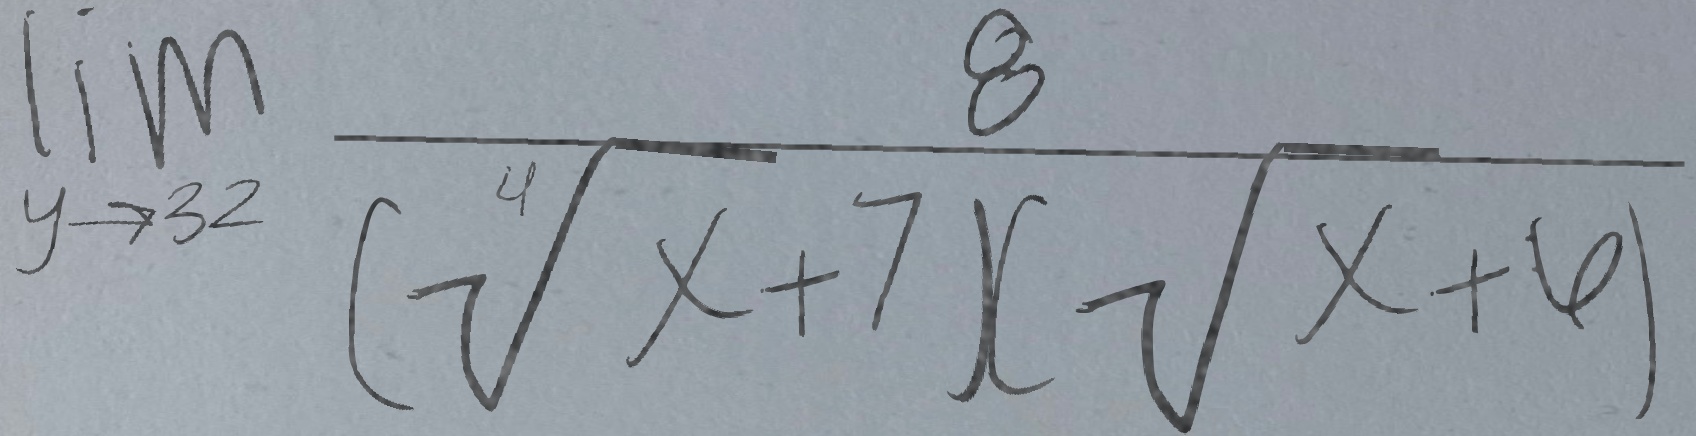 \lim_{y \to 32} \frac{8}{(\sqrt[4]{x}+7)(\sqrt{x}+6)}